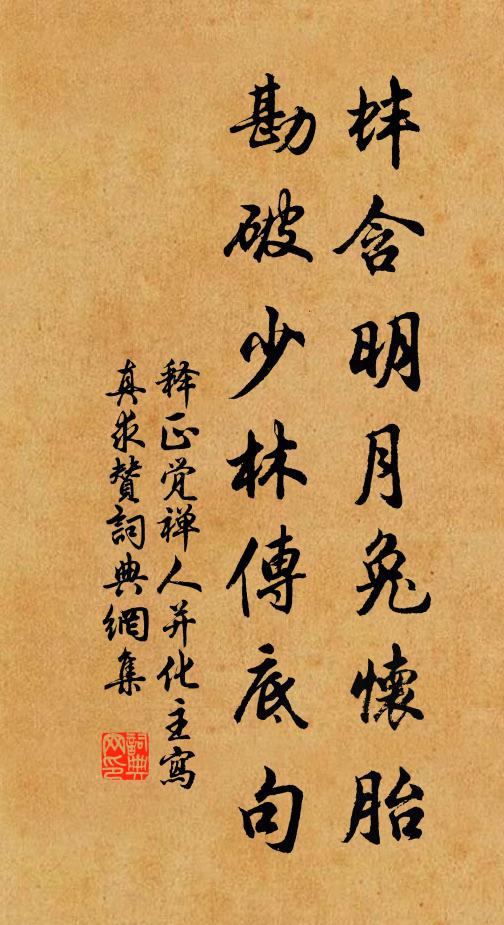 蚌含明月兔懷胎
勘破少林傳底句
释正觉禅人并化主寫
真求贊詞典網集
詞典
网印